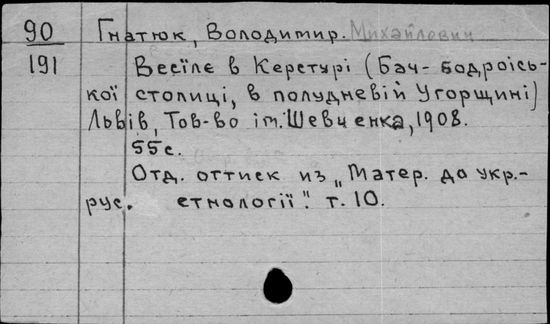 90 Гнатюк, Володимир. Михайлович
191 Весїлє в Керстурі (Бач-бодроїсь-
кої столиці, в полудневій Угорщині)
Львів, Тов-во ім. Шевченка, 1908.
55с.
Отд. оттиск из „Матер. до укр.-
рус. етнології". т. 10.